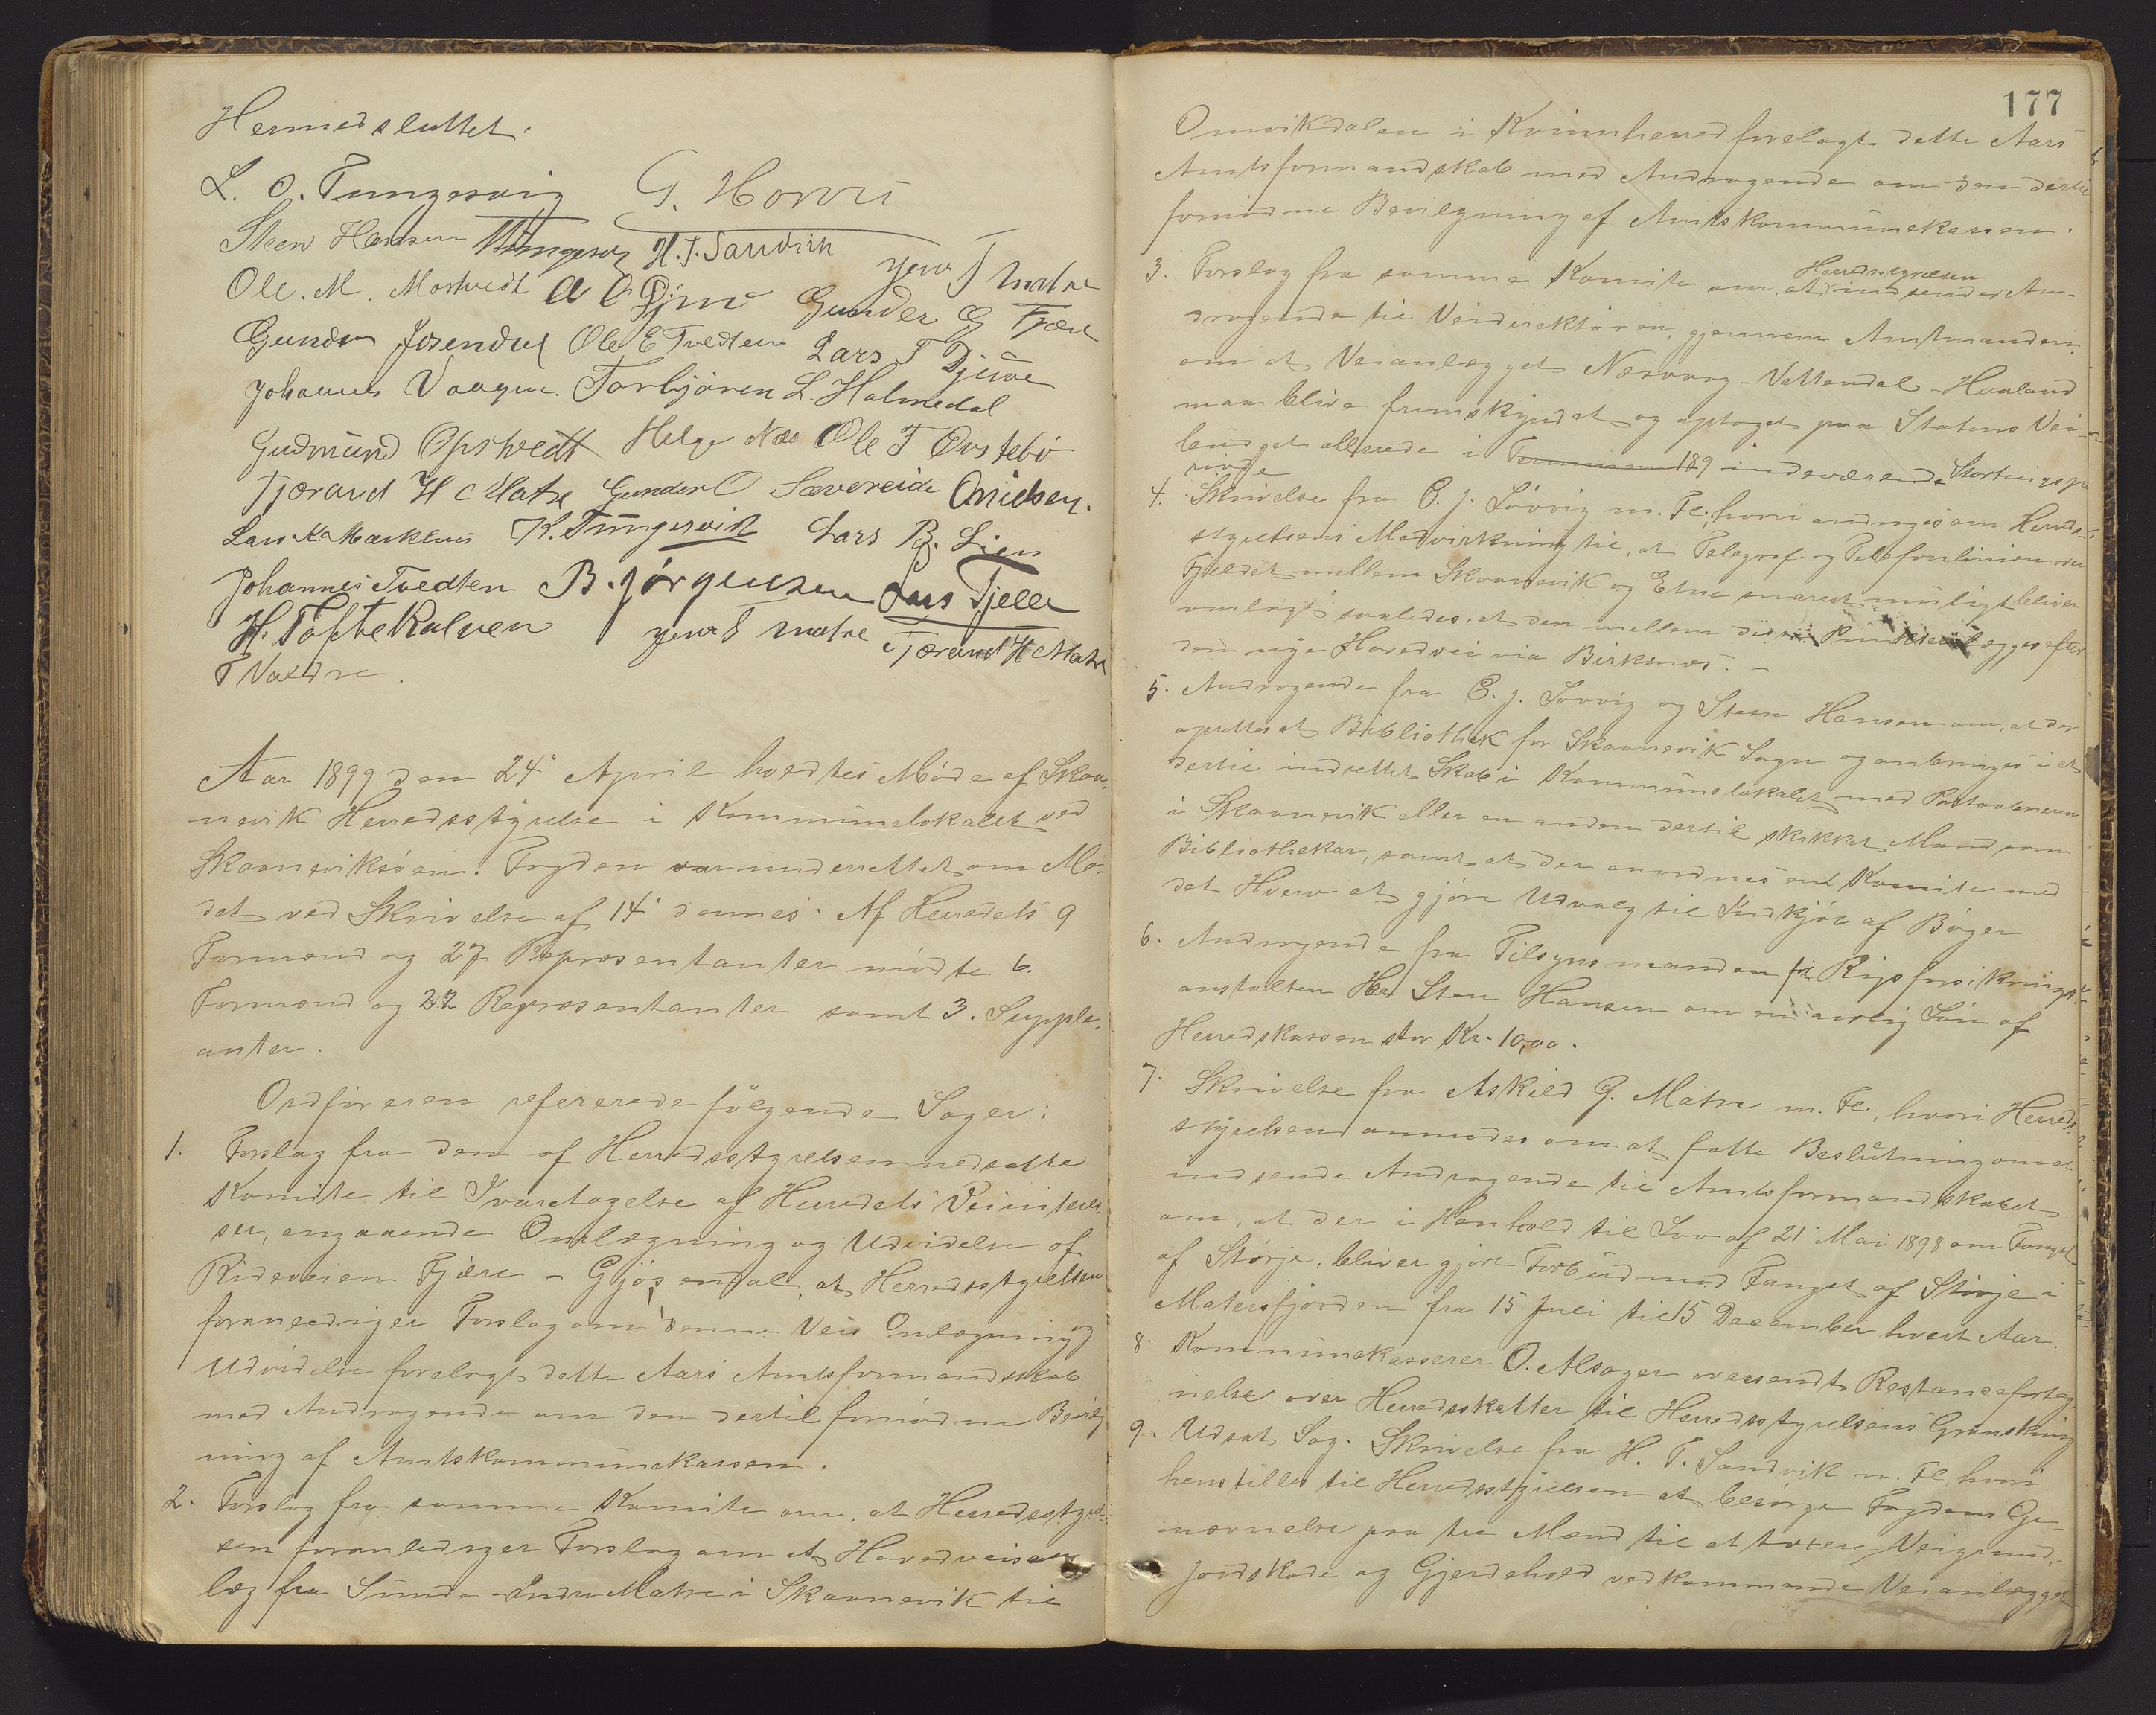 Hermed sluttet.
L. O. Tungesvig G. Horvei
Steen Hansen H. T. Sandvik
Ole. M. Mortvedt A O Djuve Jens T Matre
Gunder G Fjære
Gunder Josendal Ole E Tvedten Lars T Djuve
Johannes Vaagen. Torbjören L. Halmedal
Gudmund Opstvedt Helge Næs Ole T Østebö
Tjærand H Matre Gunder O Sævereide
Lars K. Markhus K. Tungesvik Lars B. Lien
Johannes Tvedten B. Jörgensen Lars Tjelle
H. Toftekalven Jens T Matre Tjærand H Matre
T Valdre.
Aar 1899 den 24' April holdtes Møde af Skaa-
nevik Herredsstyrelse i Kommunelokalet ved
Skaaneviksøen. Fogden var underrettet om Mø-
det ved Skrivelse af 14' dennes. Af Herredets 9
Formænd og 27 Repræsentanter mødte 6.
Formænd og 22 Repræsentanter samt 3. Supple-
anter.
Ordføreren refererede følgende Sager:
1. Forslag fra den af Herredsstyrelsen nedsatte
Komite til Ivaretagelse af Herredets Veiinteres-
ser, angaaende Omlægning og Udvidelse af
Rideveien Fjære - Gjøsendal, at Herredsstyrelsen
foranlediger Forslag om denne Veis Omlægning og
Udvidelse forelagt dette Aars Amtsformandskab
med Andragende om den dertil fornødne Bevilg-
ning af Amtskommunekassen.
2. Forslag fra samme Komite om, at Herredsstyrel-
sen foranlediger Forslag om et Hovedveisan-
læg fra Sunde - indre Matre i Skaanevik til
177
Omvikdalen i Kvinnherred forelagt dette Aars
Amtsformandskab med Andragende om den dertil
fornødne Bevilgning af Amtskommunekassen.
3. Forslag fra samme Komite om, at Herredsstyrelsen indsender An-
dragende til Veidirektøren, gjennem Amtmanden
om at Veianlægget Næsvaag - Vattendal - Haaland
maa blive fremskyndet og optaget paa Statens Vei-
budget allerede i Terminen 189 indeværende Stortingspe-
riode
4. Skrivelse fra C. J. Løvvig m. Fl., hvori andrages om Herreds-
styrelsens Medvirkning til, at Telegraf- og Telefonlinien over
Fjeldet mellem Skaanevik og Etne snarest muligt bliver
omlagt saaledes, at den mellem disse Punkter lægges efter
den nye Hovedvei via Birkenæs. -
5. Andragende fra C. J. Løvvig og Steen Hansen om, at der
oprettes et Bibliothek for Skaanevik Sogn og anbringes i et
dertil indrettet Skab i Kommunelokalet med Postaabneren
i Skaanevik eller en anden dertil skikket Mand som
Bibliothekar, samt at der anordnes en Komite med
det Hverv at gjøre Udvalg til Indkjøb af Bøger
6. Andragende fra Tilsynsmanden for Rigsforsikrings-
anstalten Hr. Sten Hansen om en aarlig Løn af
Herredskassen stor Kr. 10,00.
7. Skrivelse fra Askild G. Matre m. Fl., hvori Herreds-
styrelsen anmodes om at fatte Beslutning om at
indsende Andragende til Amtsformandskabet
om, at der i Henhold til Lov af 21' Mai 1898 om Fangst
af Størje, bliver gjort Forbud mod Fangst af Størje i
Matersfjorden fra 15 Juli til 15 December hvert Aar.
8. Kommunekasserer O. Alsager oversendt Restanceforteg-
nelse over Herredsskatter til Herredsstyrelsens Granskning
9. Udsat Sag. Skrivelse fra H. T. Sandvik m. Fl., hvori
henstilles til Herredsstyrelsen at besørge Fogdens Op-
nævnelse paa tre Mænd til at taxere Veigrund,
Jordskade og Gjerdehold vedkommende Veianlægget